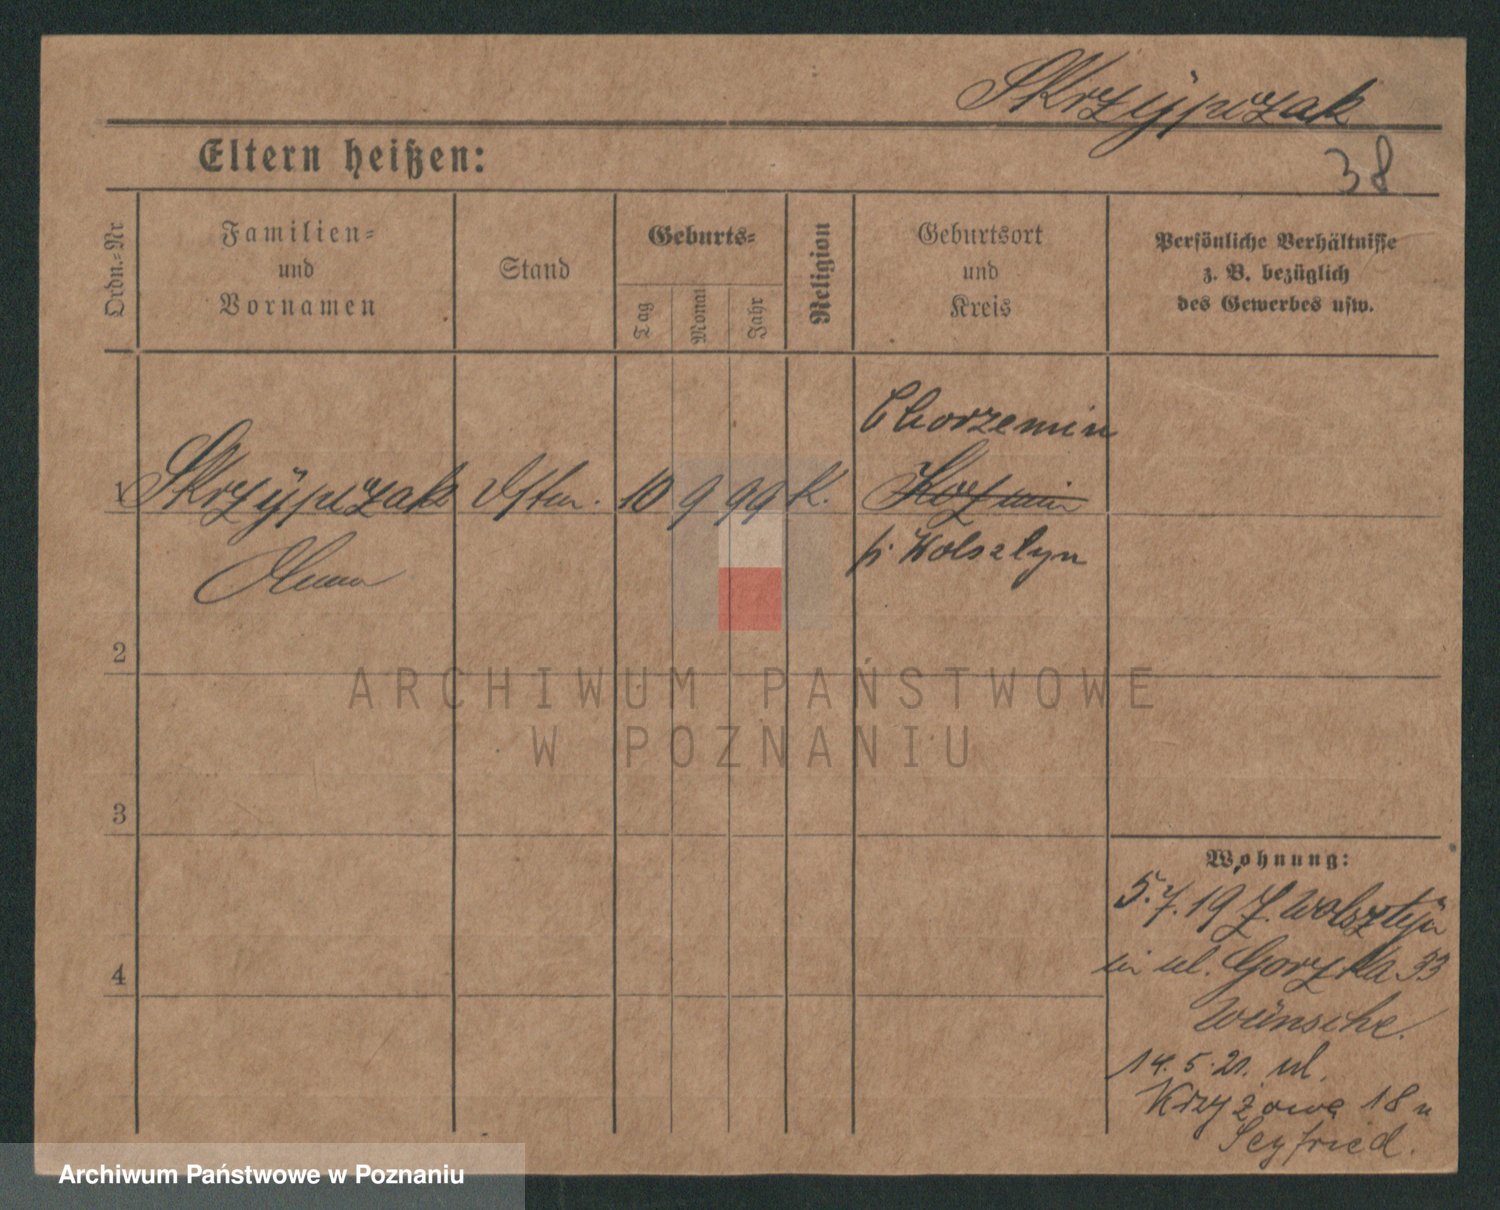 Skrzÿpczak
Eltern heißen:
38
Ordn.=Nr
Familien=
und
Vornamen
Stand
Geburts=
Tag
Monat
Jahr
Religion
Geburtsort
und
Kreis
Persönliche Verhältnisse
z. B. bezüglich
des Gewerbes usw.
Chorzemin
1 Skrzÿpczak 10 9 99 K.
p. Wolsztyn
2
ARCHIWUM PAŃSTWOWE
W POZNANIU
3
Wohnung:
5.7.19 Z. Wolsztÿn
ul. Gorzka 33
Wünsche.
4
14.5.21. ul.
Krzyżowa 18 u
Seyfried.
Archiwum Państwowe w Poznaniu